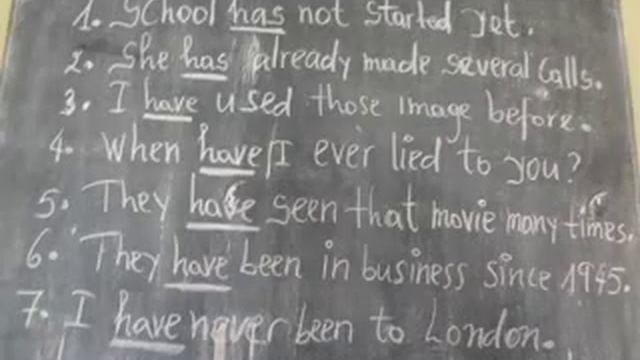 1. School has not started yet.
2. She has already made several calls.
3. I have used those image before.
4. When have I ever lied to you?
5. They have seen that movie many times.
6. They have been in business since 1945.
7. I have never been to London.